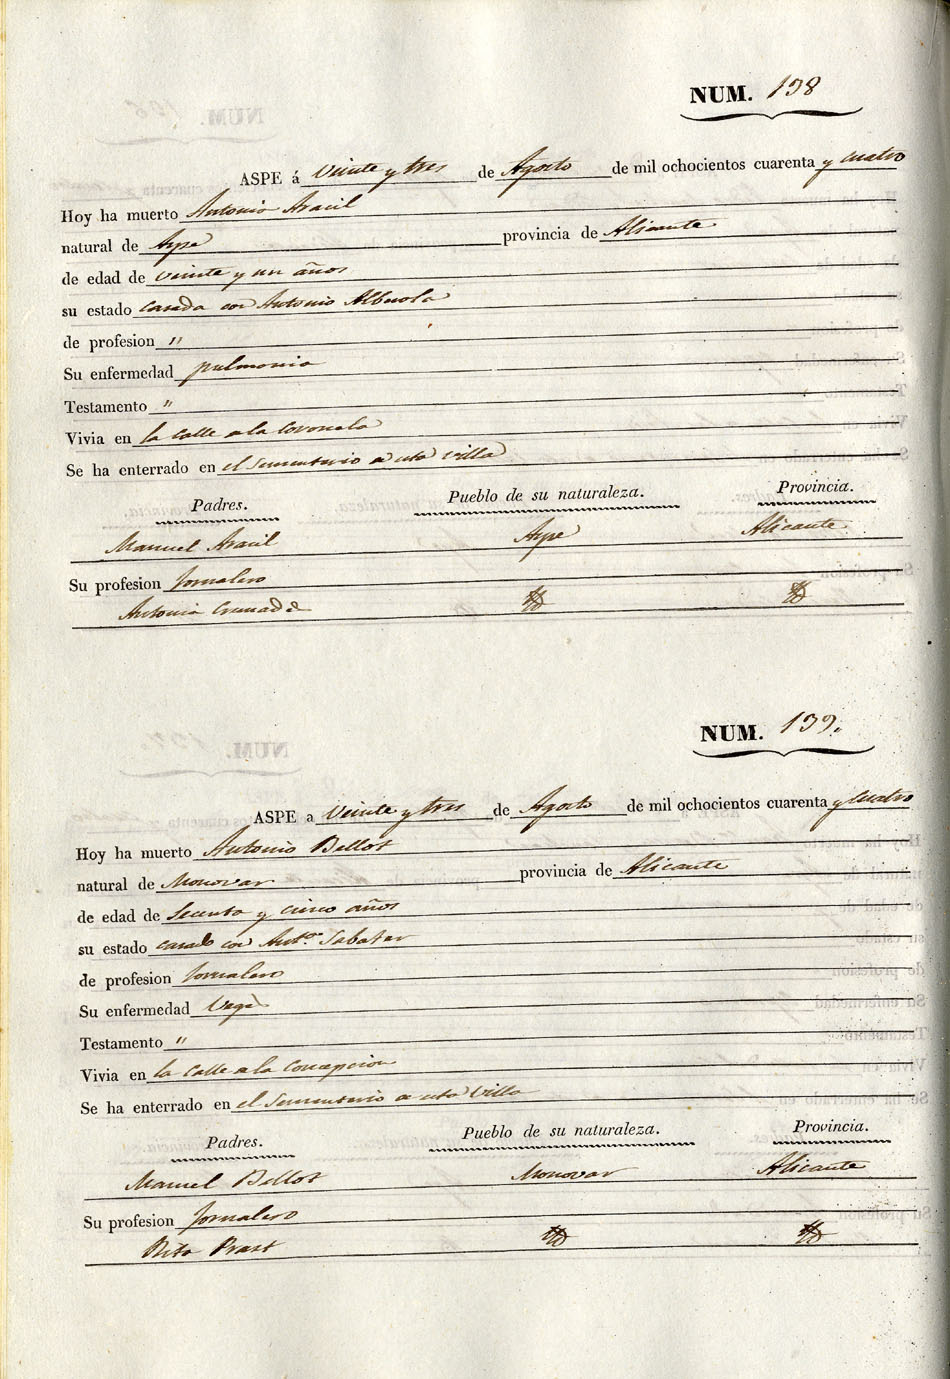 NUM. 138
ASPE á Veinte y tres de Agosto de mil ochocientos cuarenta y cuatro
Hoy ha muerto Antonia Aracil
natural de Aspe provincia de Alicante
de edad de veinte y un años
su estado casada con Antonio Alberola
de profesion "
Su enfermedad pulmonia
Testamento "
Vivia en la calle de la Coronela
Se ha enterrado en el Sementerio de esta Villa
Padres. Pueblo de su naturaleza. Provincia.
Manuel Aracil Aspe Alicante
Su profesion Jornalero
Antonia
NUM. 139.
ASPE a Veinte y tres de Agosto de mil ochocientos cuarenta y cuatro
Hoy ha muerto Antonio Bellot
natural de Monovar provincia de Alicante
de edad de Secenta y cinco años
su estado casado con Antª. Sabater
de profesion Jornalero
Su enfermedad
Testamento "
Vivia en la Calle de la Concepcion
Se ha enterrado en el Sementerio de esta Villa
Padres. Pueblo de su naturaleza. Provincia.
Manuel Bellot Monovar Alicante
Su profesion Jornalero
Rita